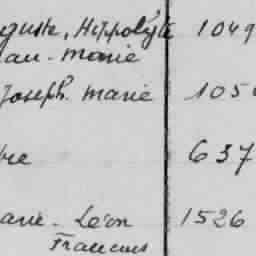 guste, Hippolyte 1049
eau-Marie
Joseph Marie 105
re 637
arie-Léon 1526
Francois